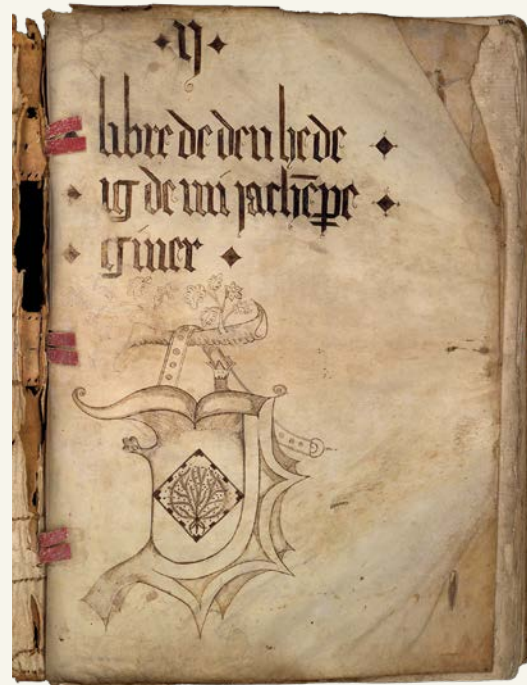 y
libre de deu he de
ig de mi jachēpe
giner